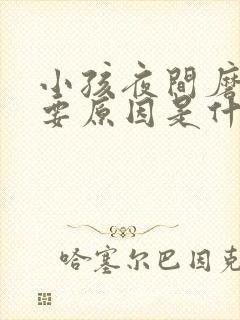 小孩夜間磨
要原因是什
哈塞尔巴因克